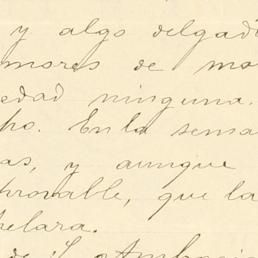 y algo delgad
mores de mo
edad ninguna.
po. En la sema
as, y aunque
hronable, que la
pelara.
de S. Ambrosio